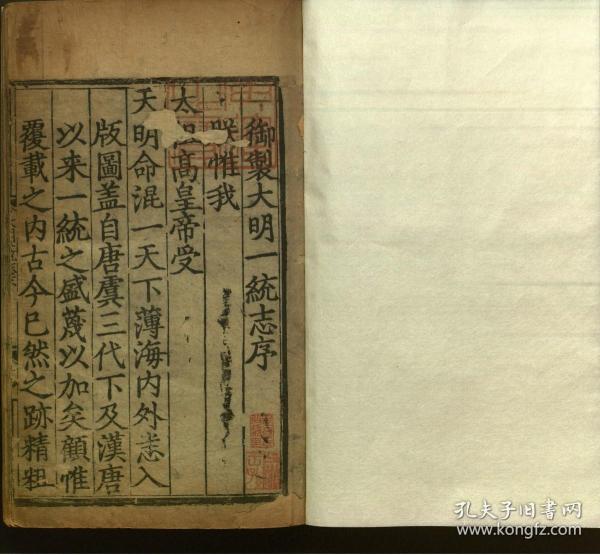 御製大明一統志序
朕惟我
太祖高皇帝受
天明命混一天下薄海内外悉入
版圖盖自唐虞三代下及漢唐
以来一統之盛蔑以加矣顧惟
覆載之内古今已然之跡精粗
孔夫子旧书网
www.kongfz.com